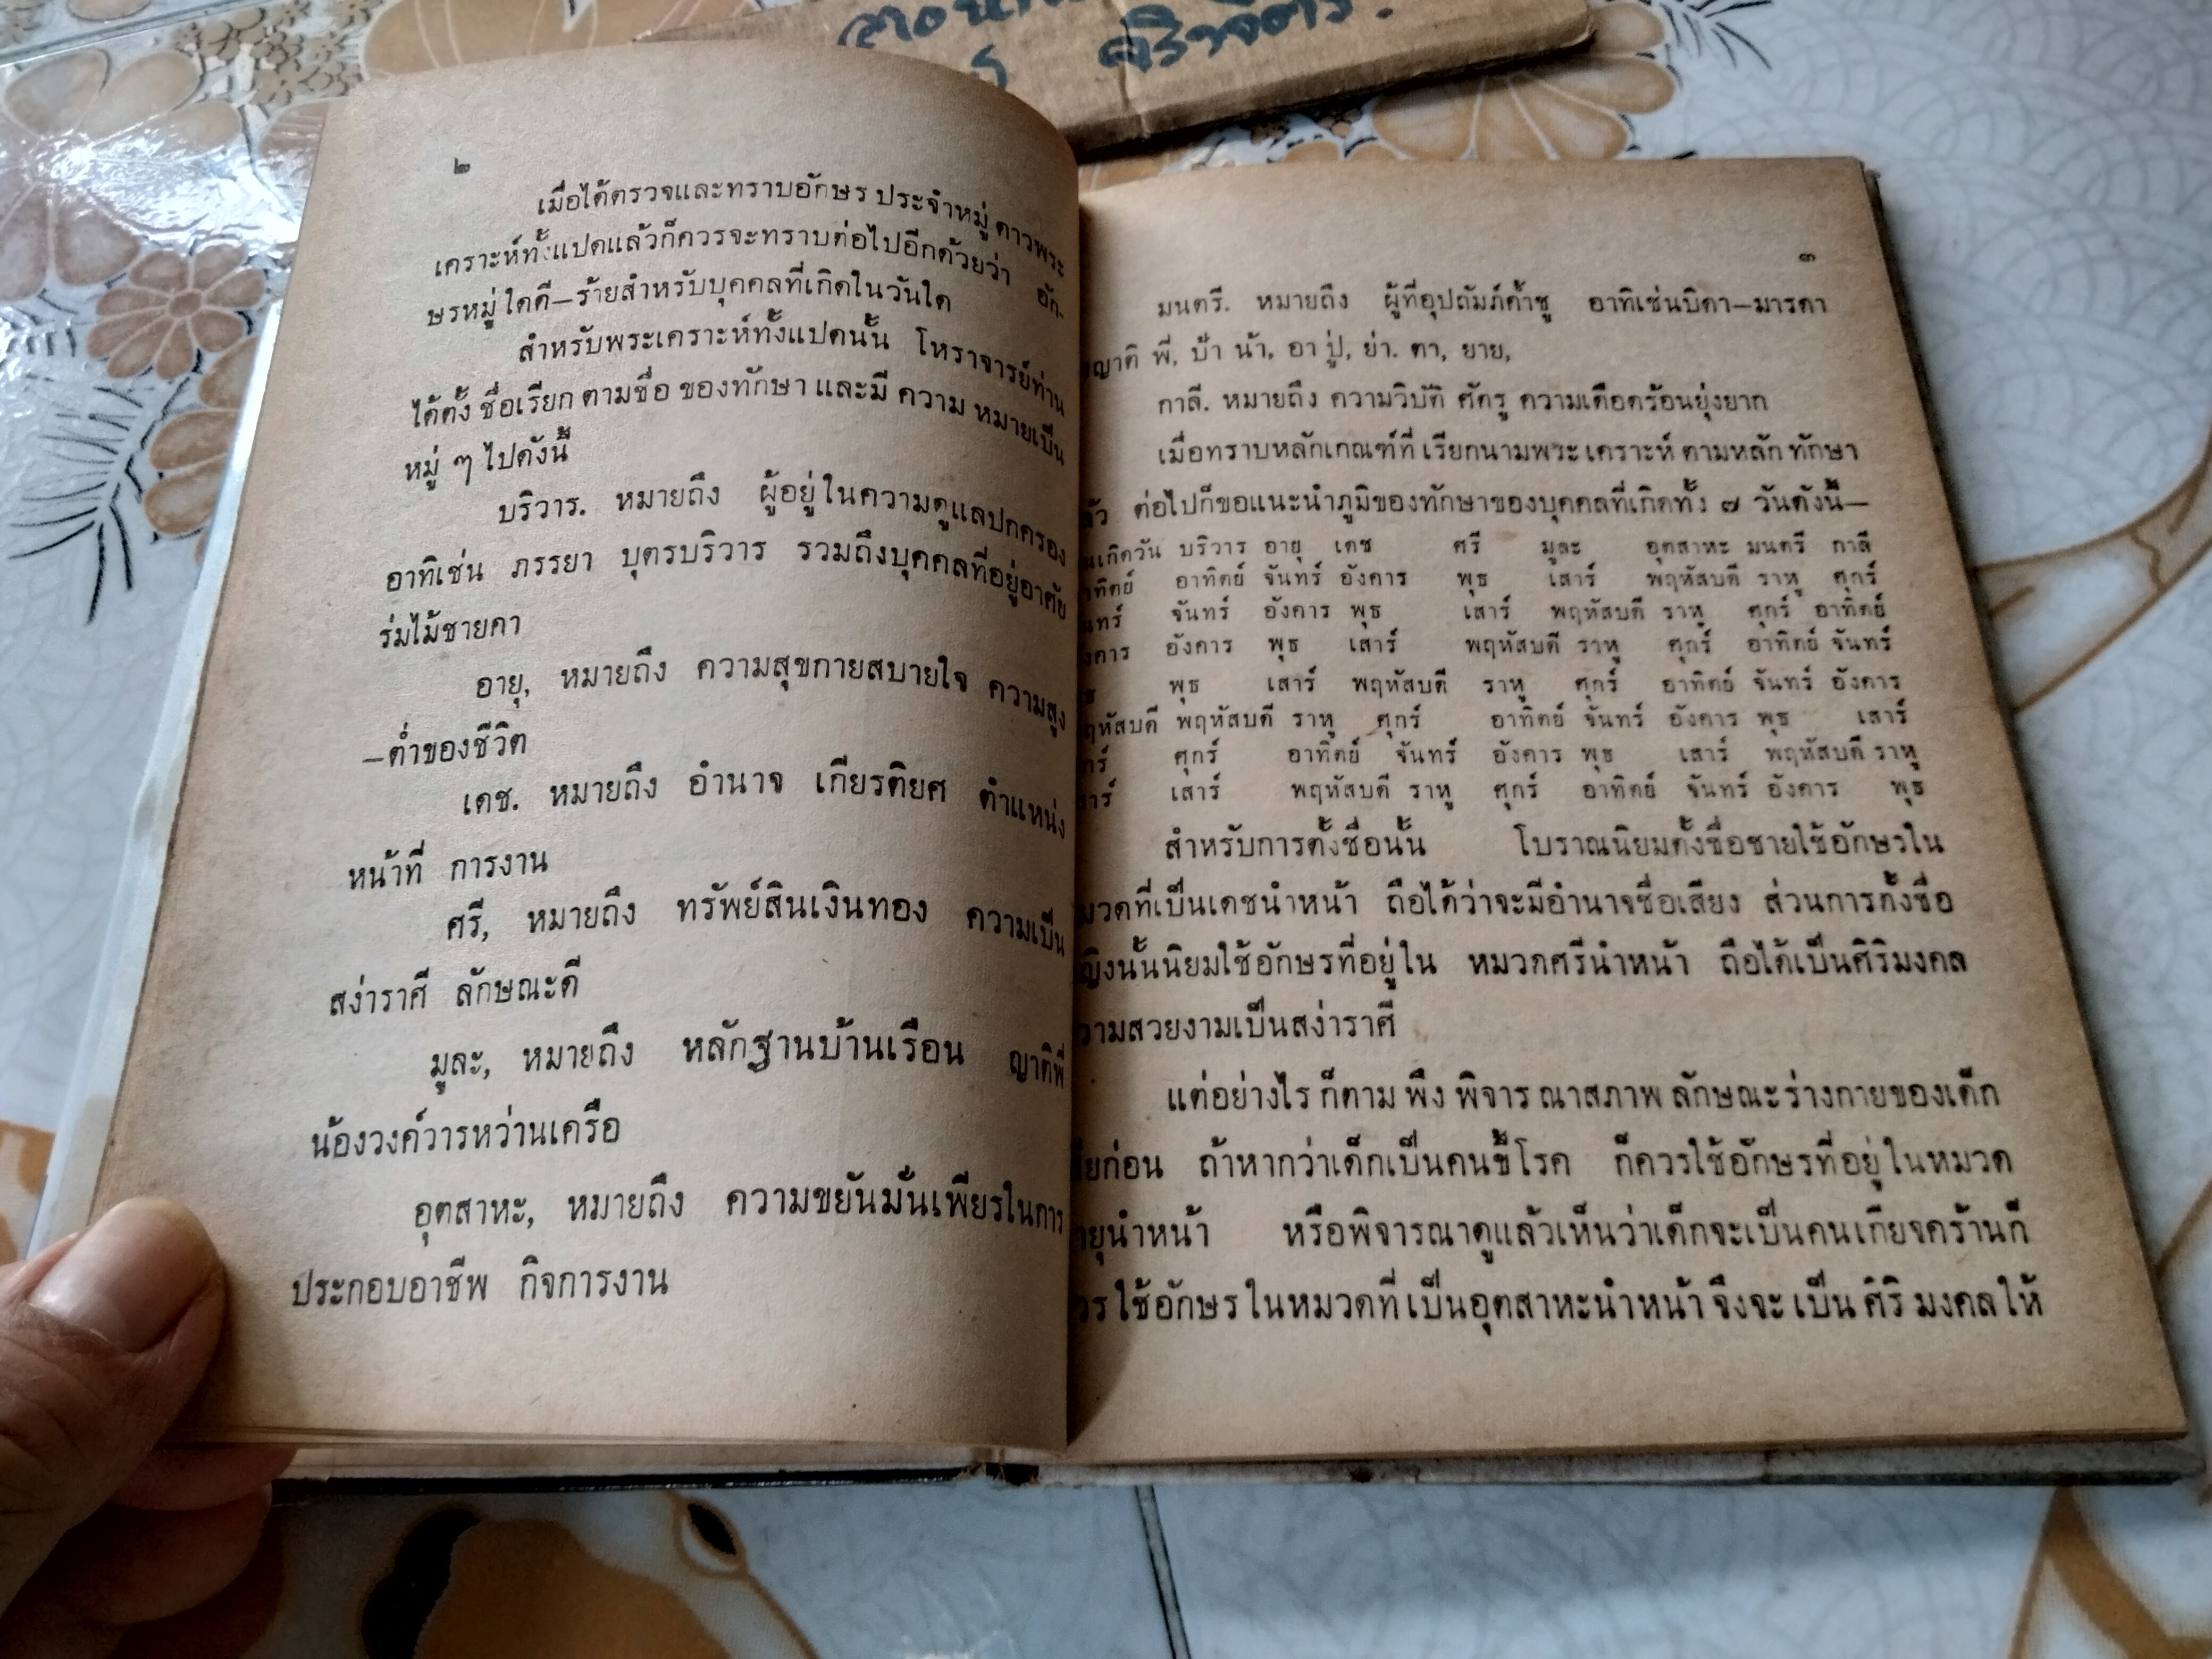 ศิริจิตร.
๒
เมื่อได้ตรวจและทราบอักษร ประจำหมู่ ดาวพระ
เคราะห์ทั้งแปดแล้วก็ควรจะทราบต่อไปอีกด้วยว่า อัก-
ษรหมู่ใดดี—ร้ายสำหรับบุคคลที่เกิดในวันใด
สำหรับพระเคราะห์ทั้งแปดนั้น โหราจารย์ท่าน
ได้ตั้ง ชื่อเรียก ตามชื่อ ของทักษา และมี ความ หมายเป็น
หมู่ ๆ ไปดังนี้
บริวาร. หมายถึง ผู้อยู่ในความดูแลปกครอง
อาทิเช่น ภรรยา บุตรบริวาร รวมถึงบุคคลที่อยู่อาศัย
ร่มไม้ชายคา
อายุ, หมายถึง ความสุขกายสบายใจ ความสูง
—ต่ำของชีวิต
เดช. หมายถึง อำนาจ เกียรติยศ ตำแหน่ง
หน้าที่ การงาน
ศรี, หมายถึง ทรัพย์สินเงินทอง ความเป็น
สง่าราศี ลักษณะดี
มูละ, หมายถึง หลักฐานบ้านเรือน ญาติพี่
น้องวงค์วารหว่านเครือ
อุตสาหะ, หมายถึง ความขยันมั่นเพียรในการ
ประกอบอาชีพ กิจการงาน
๓
มนตรี. หมายถึง ผู้ที่อุปถัมภ์ค้ำชู อาทิเช่นบิดา—มารดา
ญาติ พี่, ป้า น้า, อา ปู่, ย่า. ตา, ยาย,
กาลี. หมายถึง ความวิบัติ ศัตรู ความเดือดร้อนยุ่งยาก
เมื่อทราบหลักเกณฑ์ที่ เรียกนามพระ เคราะห์ ตามหลัก ทักษา
ต่อไปก็ขอแนะนำภูมิของทักษาของบุคคลที่เกิดทั้ง ๗ วันดังนี้—
เกิดวัน บริวาร อายุ เดช ศรี มูละ อุตสาหะ มนตรี กาลี
อาทิตย์ จันทร์ อังคาร พุธ เสาร์ พฤหัสบดี ราหู ศุกร์
จันทร์ อังคาร พุธ เสาร์ พฤหัสบดี ราหู ศุกร์ อาทิตย์
อังคาร พุธ เสาร์ พฤหัสบดี ราหู ศุกร์ อาทิตย์ จันทร์
พุธ เสาร์ พฤหัสบดี ราหู ศุกร์ อาทิตย์ จันทร์ อังคาร
พฤหัสบดี ราหู ศุกร์ อาทิตย์ จันทร์ อังคาร พุธ เสาร์
ศุกร์ อาทิตย์ จันทร์ อังคาร พุธ เสาร์ พฤหัสบดี ราหู
เสาร์ พฤหัสบดี ราหู ศุกร์ อาทิตย์ จันทร์ อังคาร พุธ
สำหรับการตั้งชื่อนั้น โบราณนิยมตั้งชื่อชายใช้อักษรใน
มวดที่เป็นเดชนำหน้า ถือได้ว่าจะมีอำนาจชื่อเสียง ส่วนการตั้งชื่อ
ญิงนั้นนิยมใช้อักษรที่อยู่ใน หมวดศรีนำหน้า ถือได้เป็นศิริมงคล
วามสวยงามเป็นสง่าราศี
แต่อย่างไร ก็ตาม พึง พิจาร ณาสภาพ ลักษณะร่างกายของเด็ก
ยก่อน ถ้าหากว่าเด็กเป็นคนขี้โรค ก็ควรใช้อักษรที่อยู่ในหมวด
ายุนำหน้า หรือพิจารณาดูแล้วเห็นว่าเด็กจะเป็นคนเกียจคร้านก็
วร ใช้อักษร ในหมวดที่ เป็นอุตสาหะนำหน้า จึงจะ เป็น ศิริ มงคลให้